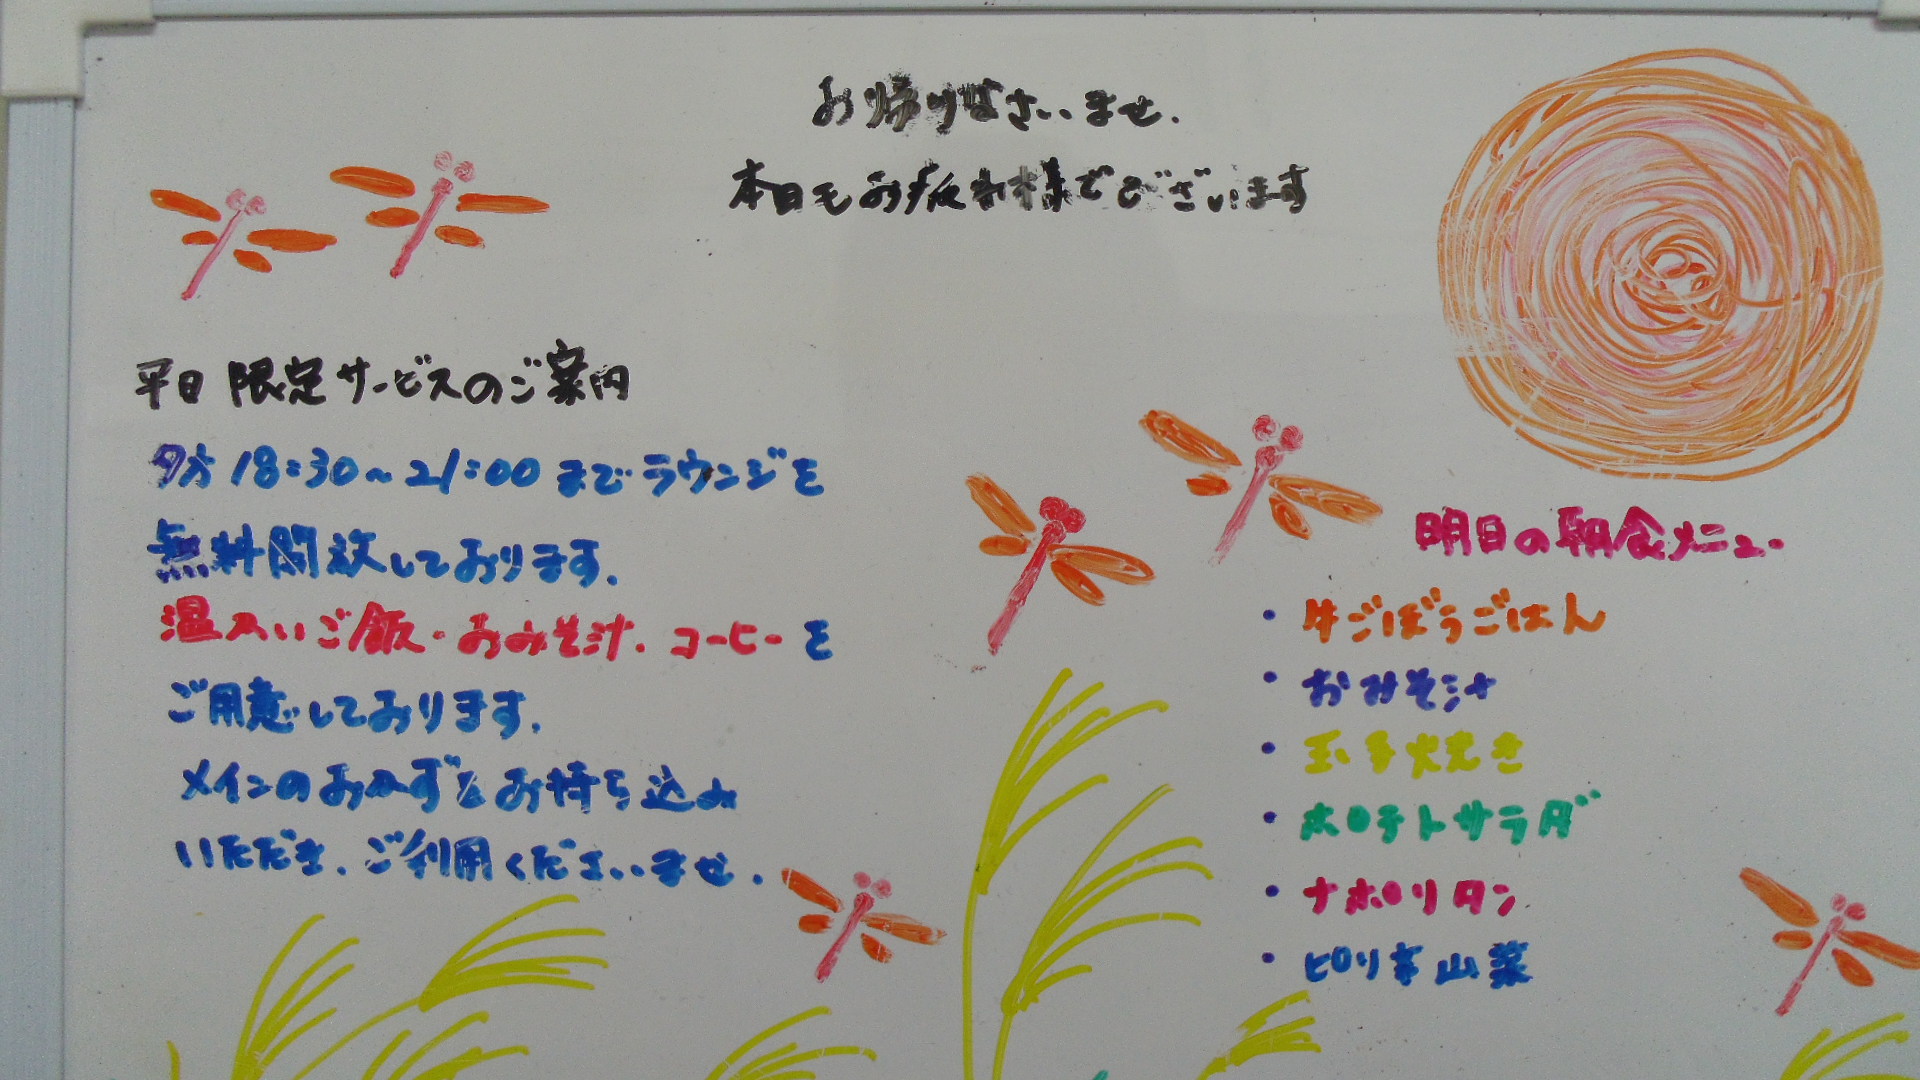 お帰りなさいませ.
本日もお疲れ様でございます
平日限定サービスのご案内
夕方18:30～21:00までラウンジを
無料開放しております.
温かいご飯・おみそ汁.コーヒーを
ご用意しております.
メインのおかずをお持ち込み
いただき.ご利用くださいませ.
明日の朝食メニュー
・牛ごぼうごはん
・おみそ汁
・玉子焼き
・ポテトサラダ
・ナポリタン
・ピリ辛山菜